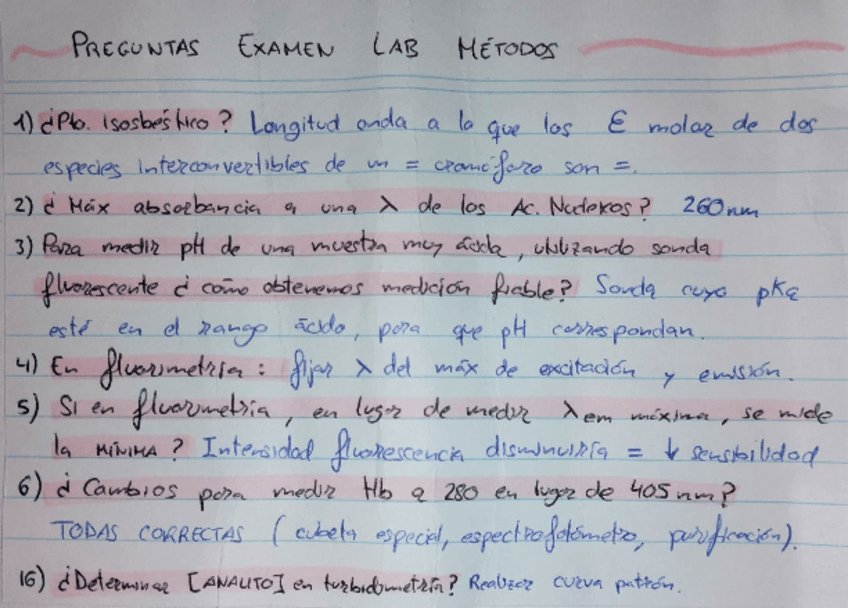 PREGUNTAS EXAMEN LAB MÉTODOS
1) ¿Pto. Isosbéstico? Longitud onda a la que los Ɛ molar de dos
especies interconvertibles de un = cromóforo son =.
2) ¿Máx absorbancia a una λ de los Ac. Nucleicos? 260nm
3) Para medir pH de una muestra muy ácida, utilizando sonda
fluorescente ¿cómo obtenemos medición fiable? Sonda cuyo pKa
esté en el rango ácido, para que pH correspondan.
4) En fluorimetría: fijar λ del máx de excitación y emisión.
5) Si en fluorimetría, en lugar de medir λem máxima, se mide
la MÍNIMA? Intensidad fluorescencia disminuiría = ↓ sensibilidad
6) ¿Cambios para medir Hb a 280 en lugar de 405 nm?
TODAS CORRECTAS (cubeta especial, espectrofotómetro, purificación).
16) ¿Determinar [ANALITO] en turbidimetría? Realizar curva patrón.